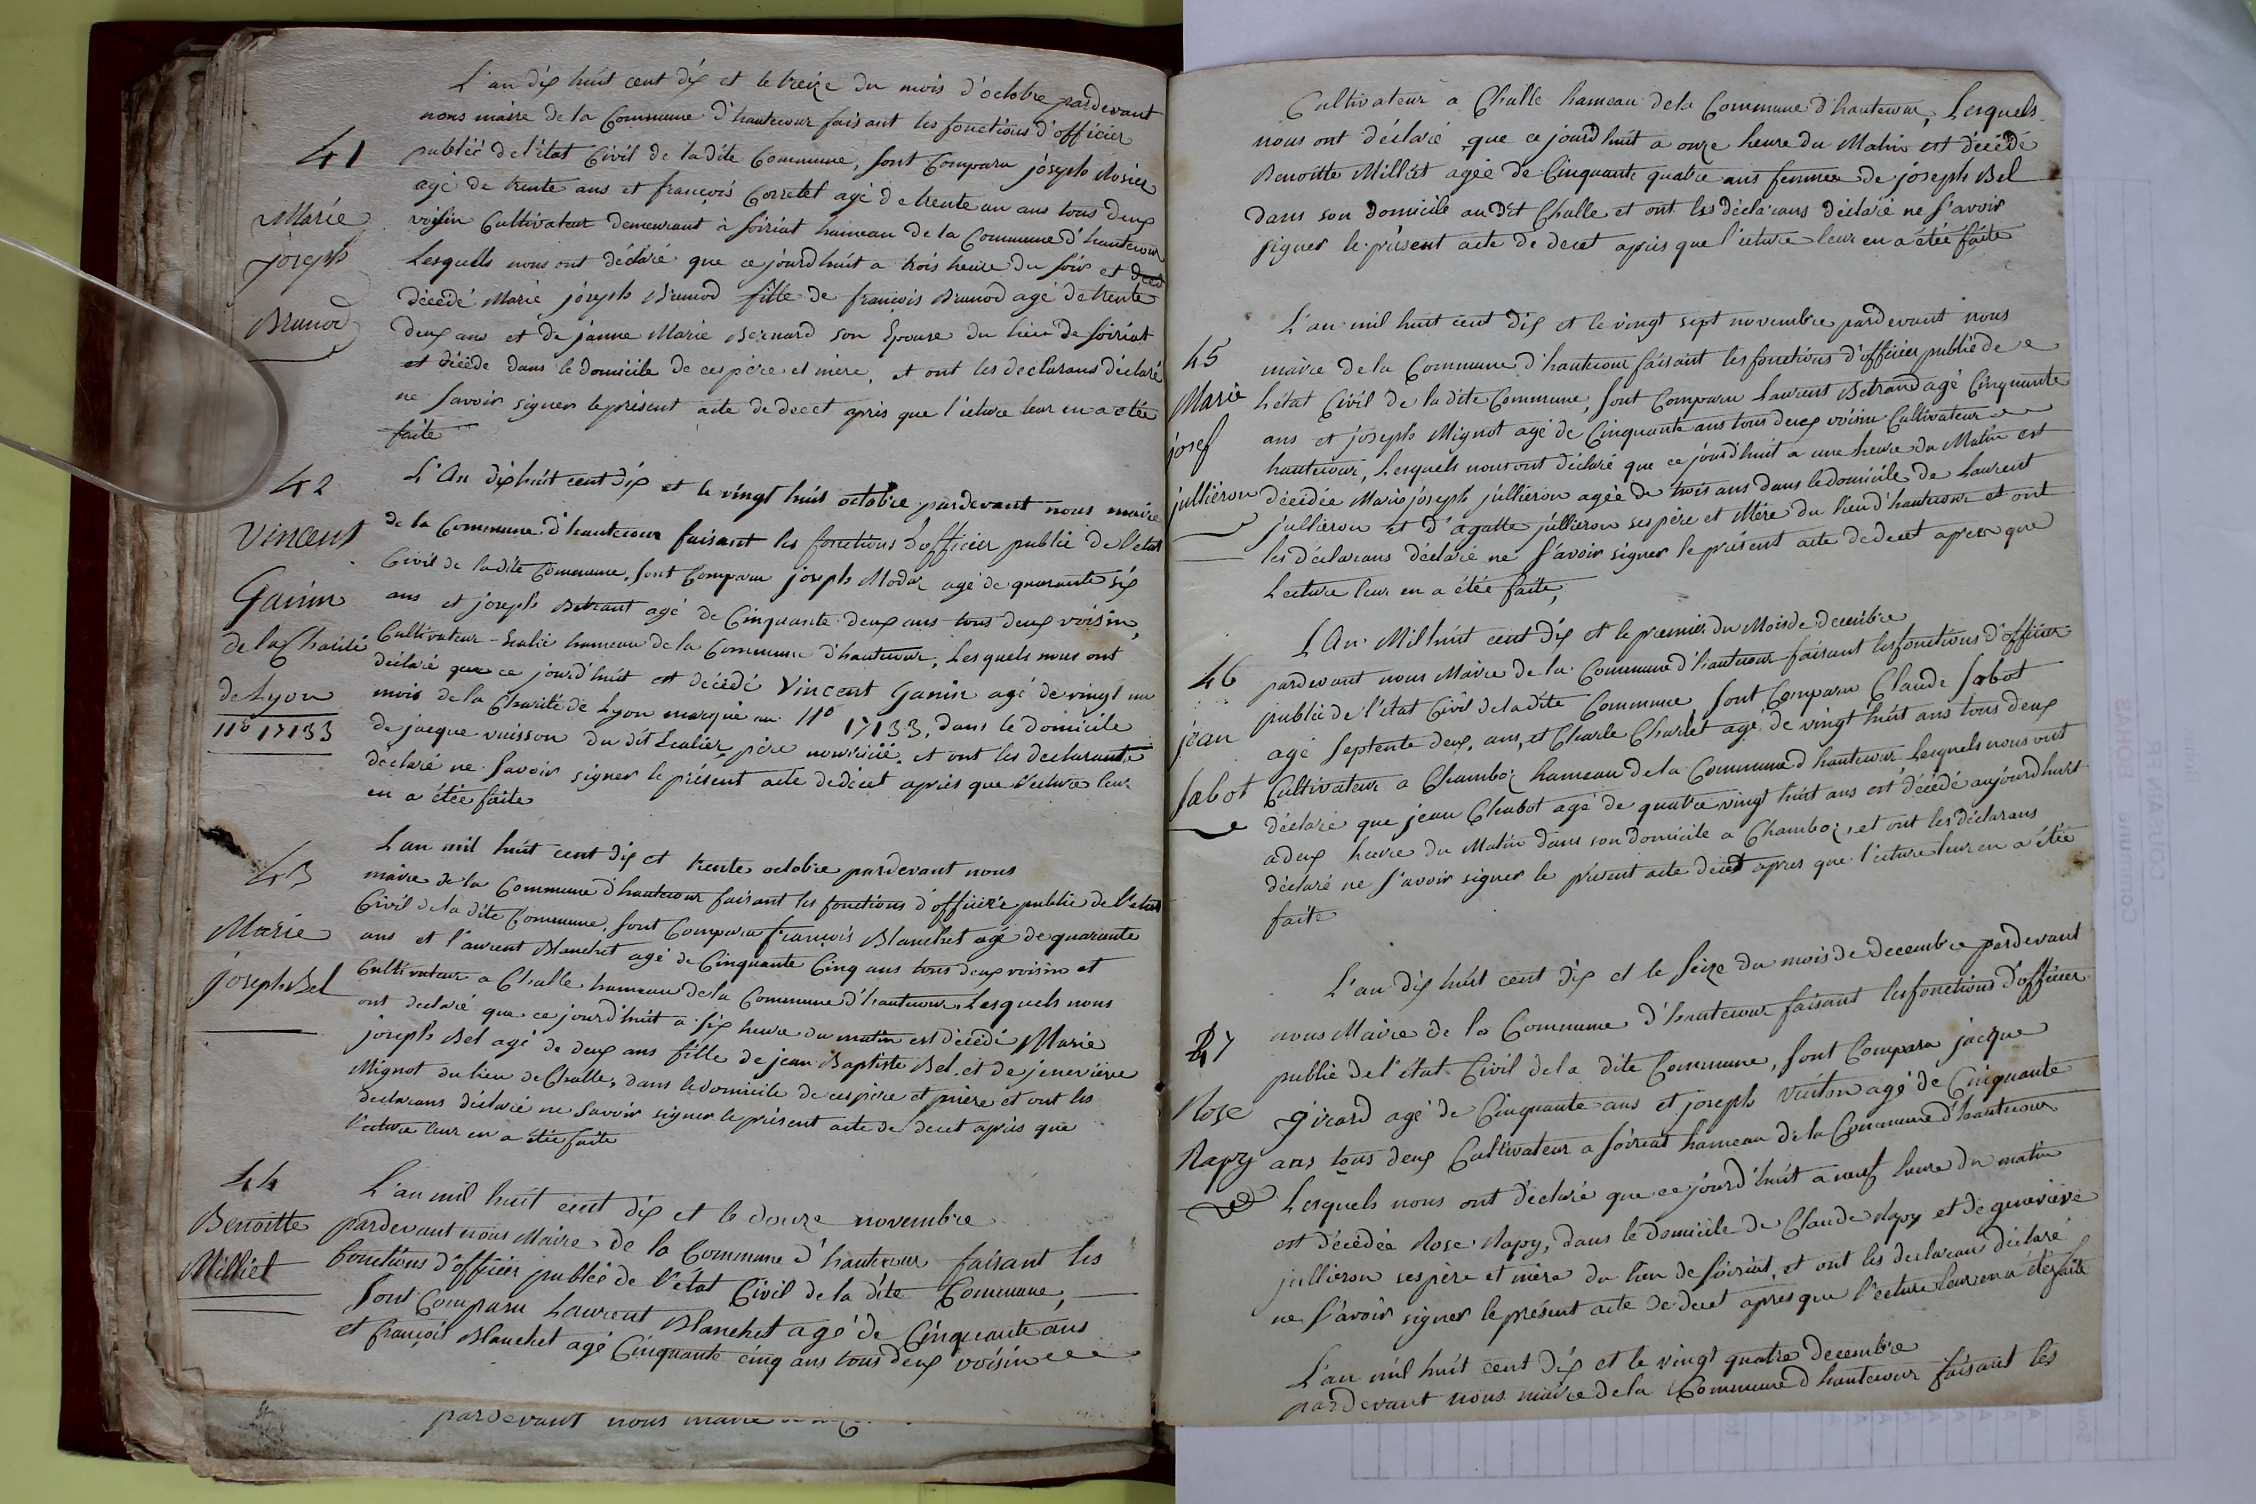 L'an dix huit cent dix et le treize du mois d'octobre pardevant
nous maire de la Commune d'hautecour faisant les fonctions d'officier
41
publié de l'état Civil de ladite Commune, sont Comparu joseph Rosier
agé de trente ans et françois Corretel agé de trente un ans tous deux
Marie
voisin Cultivateur demeurant à Soiriat hameau de la Commune d'hautecour
joseph
Lesquels nous ont déclaré que ce jourd'huit a trois heure du soir et
décedé Marie joseph Brunod fille de françois Brunod agé de trente
Brunod
deux ans et de janne Marie Bernard son Epouse du lieu de Soiriat
et décédé dans le domicile de ces père et mère, et ont les declarans déclaré
ne savoir signer le présent acte de decet apris que l'ecture leur en a étée
faite
42
L'An dixhuit cent dix et le vingt huit octobre pardevant nous maire
Vincent
de la Commune d'hautecour faisant les fonctions d'officier publié de l'etat
Civil de ladite Commune, sont Comparu joseph Modas agé de quarante six
Ganin
ans et joseph Betrant agé de Cinquante deux ans tous deux voisin,
de la Charité
Cultivateur hameau de la Commune d'hautecour, Lesquels nous ont
déclaré que ce jourd'huit est décédé Vincent Ganin agé de vingt un
de Lyon
mois de la Charité de Lyon marqué au n° 17133, dans le domicile
n° 17133
de jacque vuisson du dit père nouricié, et ont les declarants
déclaré ne savoir signer le présent acte de décet apriés que l'ecture leur
en a étée faite
L'an mil huit cent dix et trente octobre pardevant nous
43
maire de la Commune d'hautecour faisant les fonctions d'officier publié de l'etat
Civil de la dite Commune, sont Comparu françois Blanchet agé de quarante
Marie
ans et l'aurent Blanchet agé de Cinquante Cinq ans tous deux voisin et
joseph Bel
Cultivateur a Challe hameau de la Commune d'hautecour, Lesquels nous
ont declaré que ce jourd'huit a six heure du matin est décédé Marie
joseph Bel agé de deux ans fille de jean Baptiste Bel et de jenevieve
Mignot du lieu de Challe, dans le domicile de ces père et mère et ont les
declarans déclaré ne savoir signer le présent acte de decet apriés que
l'ecture leur en a étée faite
44
L'an mil huit cent dix et le douze novembre
Benoitte
pardevant nous Maire de la Commune d'hautecour faisant les
Milliet
fonctions d'officier publié de l'état Civil de la dite Commune,
sont Comparu Laurent Blanchet agé de Cinquante ans
et françois Blanchet agé Cinquante cinq ans tous deux voisin
pardevant nous maire
Cultivateur a Challe hameau de la Commune d'hautecour, Lesquels
nous ont déclaré que ce jourd'huit a onze heure du Matin est décédé
Benoitte Milliet agée de Cinquante quatre ans femme de joseph Bel
dans son domicile au dit Challe et ont les déclarans déclaré ne s'avoir
signer le présent acte de decet apriés que l'ecture leur en a étée faite
L'an mil huit cent dix et le vingt sept novembre pardevant nous
45
maire de la Commune d'hautecour faisant les fonctions d'officier publié de
Marie
L'état Civil de la dite Commune, sont Comparu Laurent Betrand agé Cinquante
josef
ans et joseph Mignot agé de Cinquante ans tous deux voisin Cultivateur
hautecour, Lesquels nous ont déclaré que ce jourd'huit a une heure du Matin est
jullieron
décédée Marie joseph jullieron agée de trois ans dans le domicile de Laurent
jullieron et d'agatte jullieron ses père et Mère du lieu d'hautecour et ont
les déclarans déclaré ne s'avoir signer le présent acte de decet apres que
Lecture leur en a étée faite,
L'An Mil huit cent dix et le premier du Mois de decembre
46
pardevant nous Maire de la Commune d'hautecour faisant les fonctions d'officier
publié de l'état Civil de la dite Commune, sont Comparu Claude Sabot
jean
agé septente deux, ans, et Charle Charlet agé de vingt huit ans tous deux
Cultivateur a Chamboz hameau de la Commune d'hautecour Lesquels nous ont
Sabot
déclaré que jean Chabot agé de quatre vingt huit ans est décédé aujourdhuit
a deux heure du Matin dans son domicile a Chamboz, et ont les déclarans
déclaré ne s'avoir signer le présent acte decet apres que l'ecture leur en a étée
faite
L'an dix huit cent dix et le seize du mois de decembre pardevant
47
nous Maire de la Commune d'hautecour faisant les fonctions d'officier
publié de l'état Civil de la dite Commune, sont Comparu jacque
Rose
girard agé de Cinquante ans et joseph Vuiton agé de Cinquante
Rapy
ans tous deux Cultivateur a Soiriat hameau de la Commune d'hautecour
Lesquels nous ont déclaré que ce jourd'huit a neuf heure du matin
est décédée Rose Rapy, dans le domicile de Claude Rapy et de genevieve
jullieron ses père et mère du lieu de Soiriat, et ont les declarans déclaré
ne s'avoir signer le présent acte de decet apres que l'ecture leur en a étée faite
L'an mil huit cent dix et le vingt quatre decembre
pardevant nous maire de la Commune d'hautecour faisant les